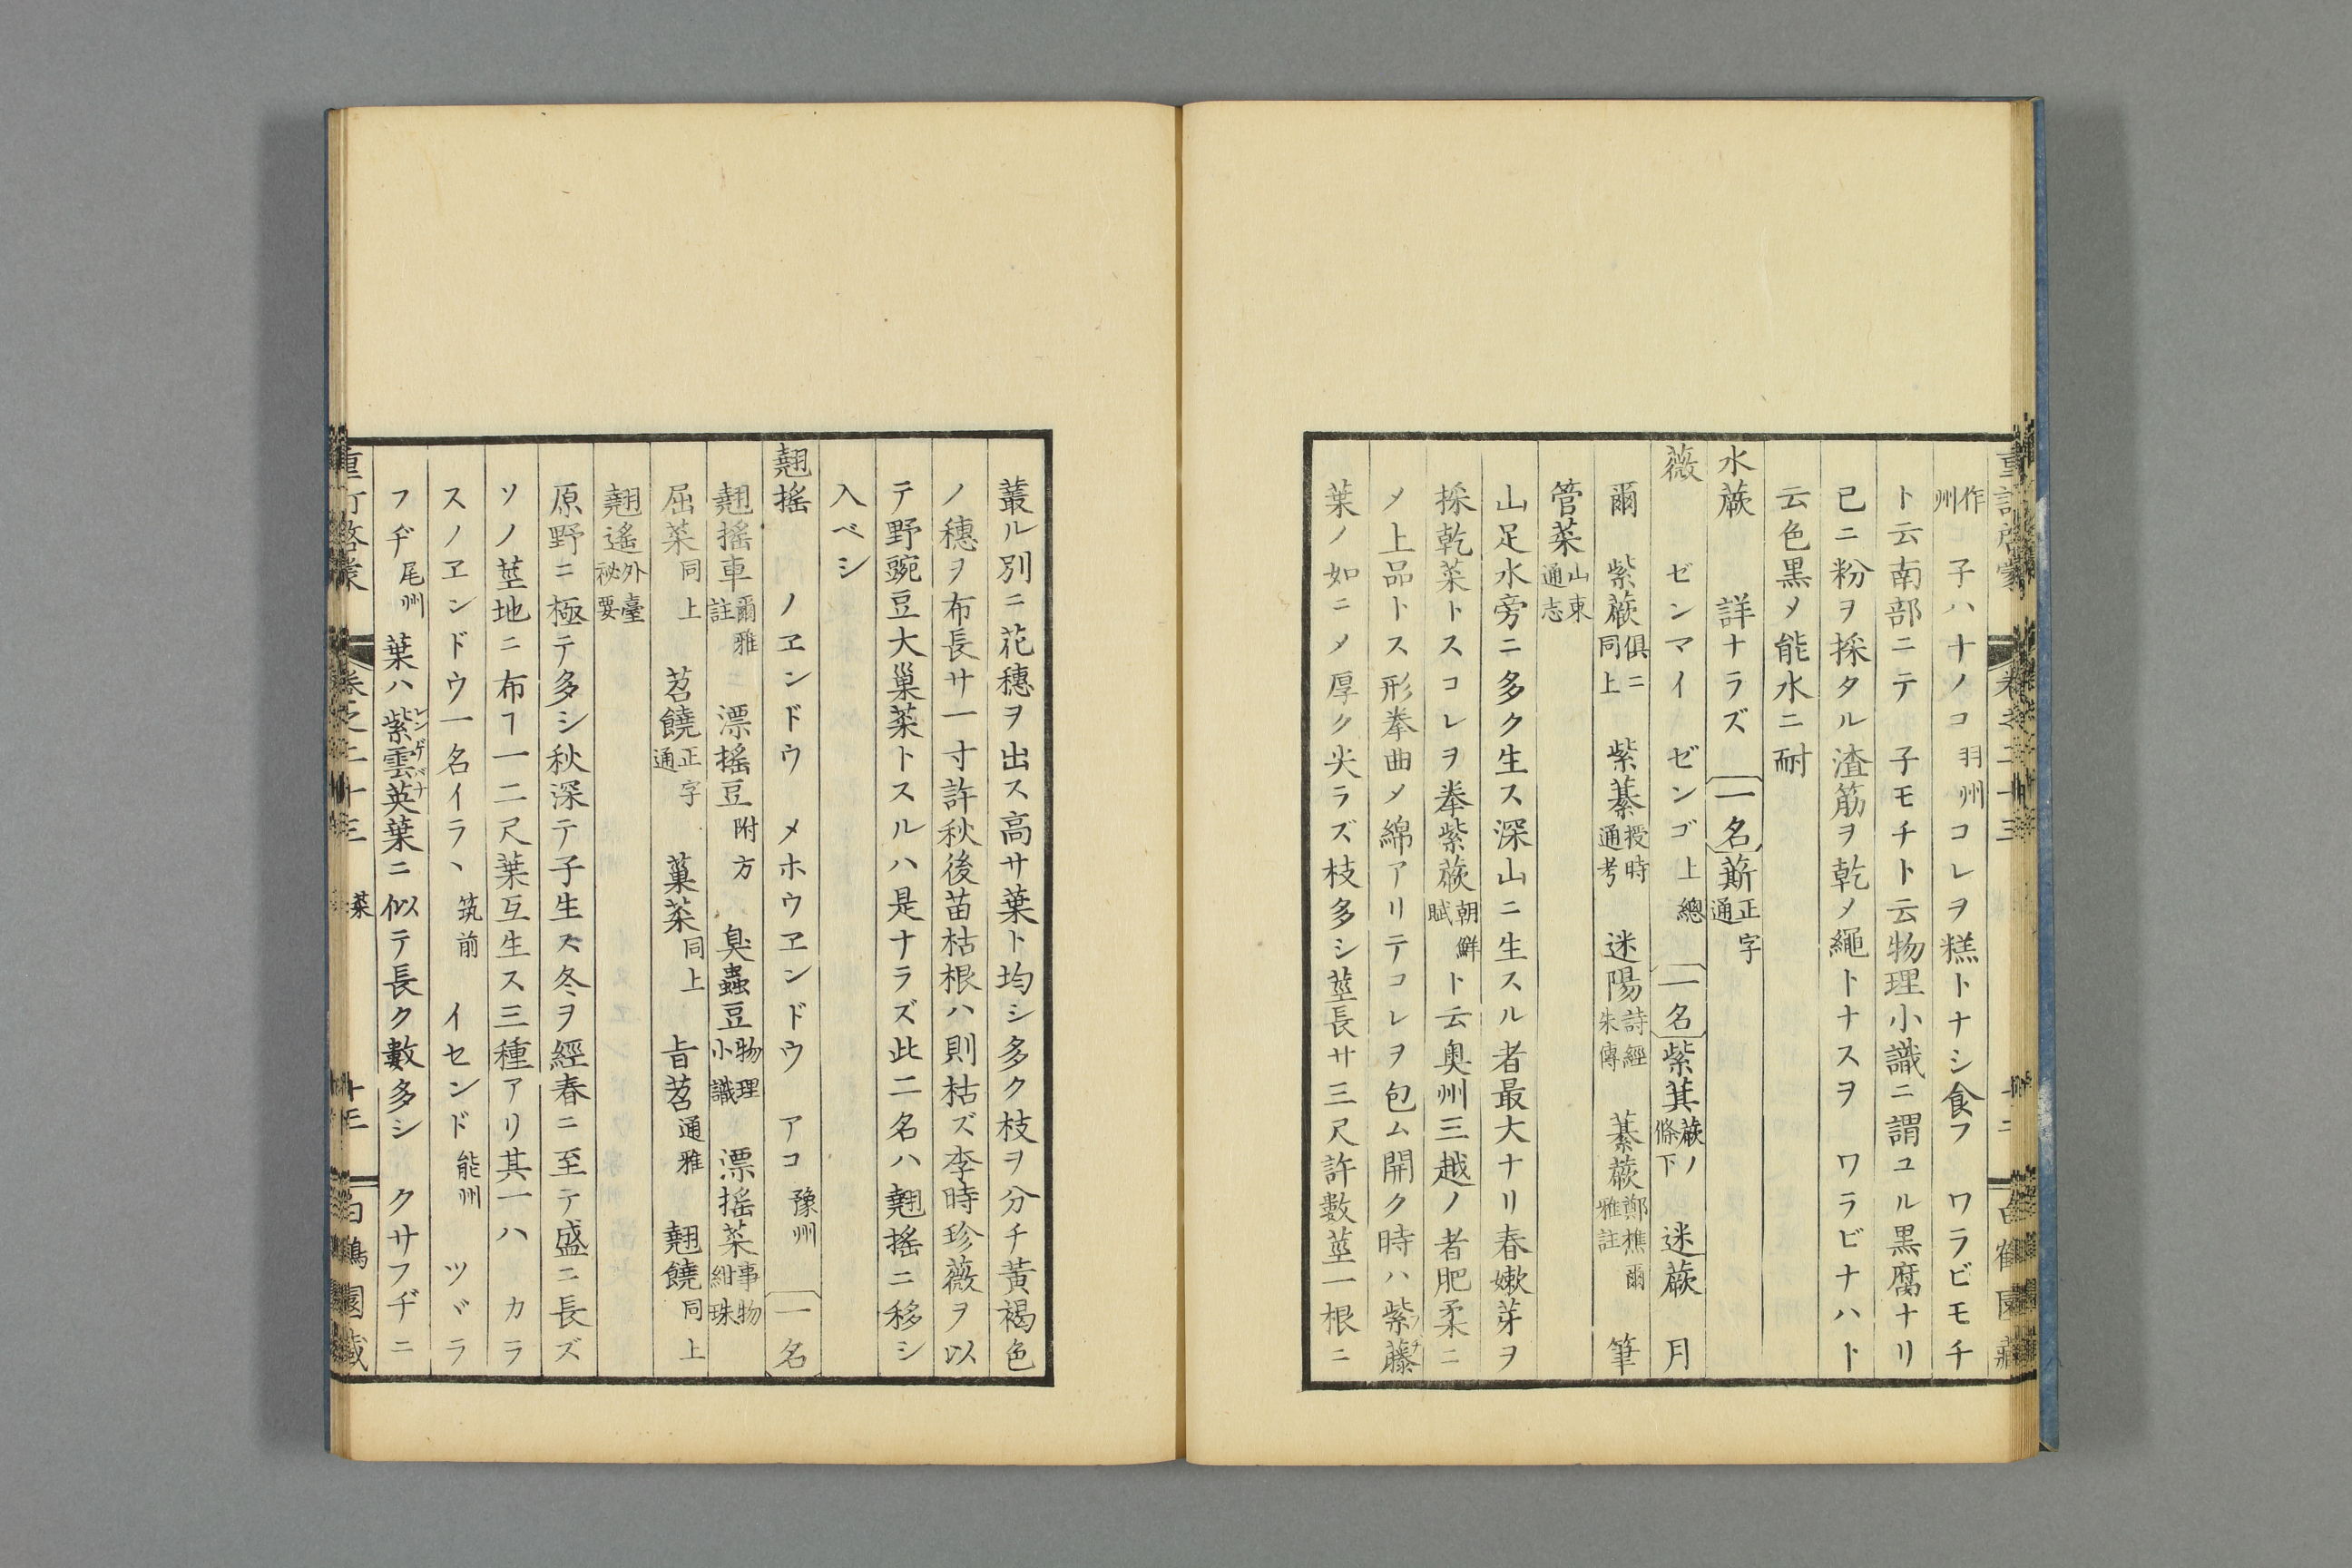 作州 子ハナノコ 羽州 コレヲ糕トナシ食フ ワラビモチ
ト云南部ニテ 子モチト云物理小識ニ謂ユル黒腐ナリ
已ニ粉ヲ採タル渣筋ヲ乾メ繩トナスヲ ワラビナハト
云色黒メ能水ニ耐
水蕨 詳ナラズ 一名 䔮 正字通
薇 ゼンマイ ゼンゴ 上總 一名 紫萁 蕨ノ條下 迷蕨 月
爾 紫蕨 俱ニ同上 紫綦 授時通考 迷陽 詩經朱傳 綦蕨 鄭樵爾雅註 筆
管菜 山東通志
山足水旁ニ多ク生ス深山ニ生スル者最大ナリ春嫩芽ヲ
採乾菜トスコレヲ拳紫蕨 朝鮮賦 ト云奥州三越ノ者肥柔ニ
メ上品トス形拳曲メ綿アリテコレヲ包ム開ク時ハ紫藤
葉ノ如ニメ厚ク尖ラズ枝多シ莖長サ三尺許數莖一根ニ
叢ル別ニ花穗ヲ出ス高サ葉ト均シ多ク枝ヲ分チ黃褐色
ノ穗ヲ布長サ一寸許秋後苗枯根ハ則枯ズ李時珍薇ヲ以
テ野豌豆大巢菜トスルハ是ナラズ此二名ハ翹搖ニ移シ
入ベシ
翹搖 ノヱンドウ メホウヱンドウ アコ 豫州 一名
翹搖車 爾雅註 漂搖豆 附方 臭蟲豆 物理小識 漂搖菜 事物紺珠
屈菜 同上 苕饒 正字通 菓菜 同上 旨苕 通雅 翹饒 同上
翹遙 外臺祕要
原野ニ極テ多シ秋深テ子生ス冬ヲ經春ニ至テ盛ニ長ズ
ソノ莖地ニ布ヿ一二尺葉互生ス三種アリ其一ハ カラ
スノヱンドウ一名イラヽ 筑前 イセンド 能州 ツヾラ
フヂ 尾州 葉ハ紫雲英レンゲバナ葉ニ似テ長ク數多シ クサフヂニ
重訂啓蒙 卷之二十三 菜 十三 白鶴園藏